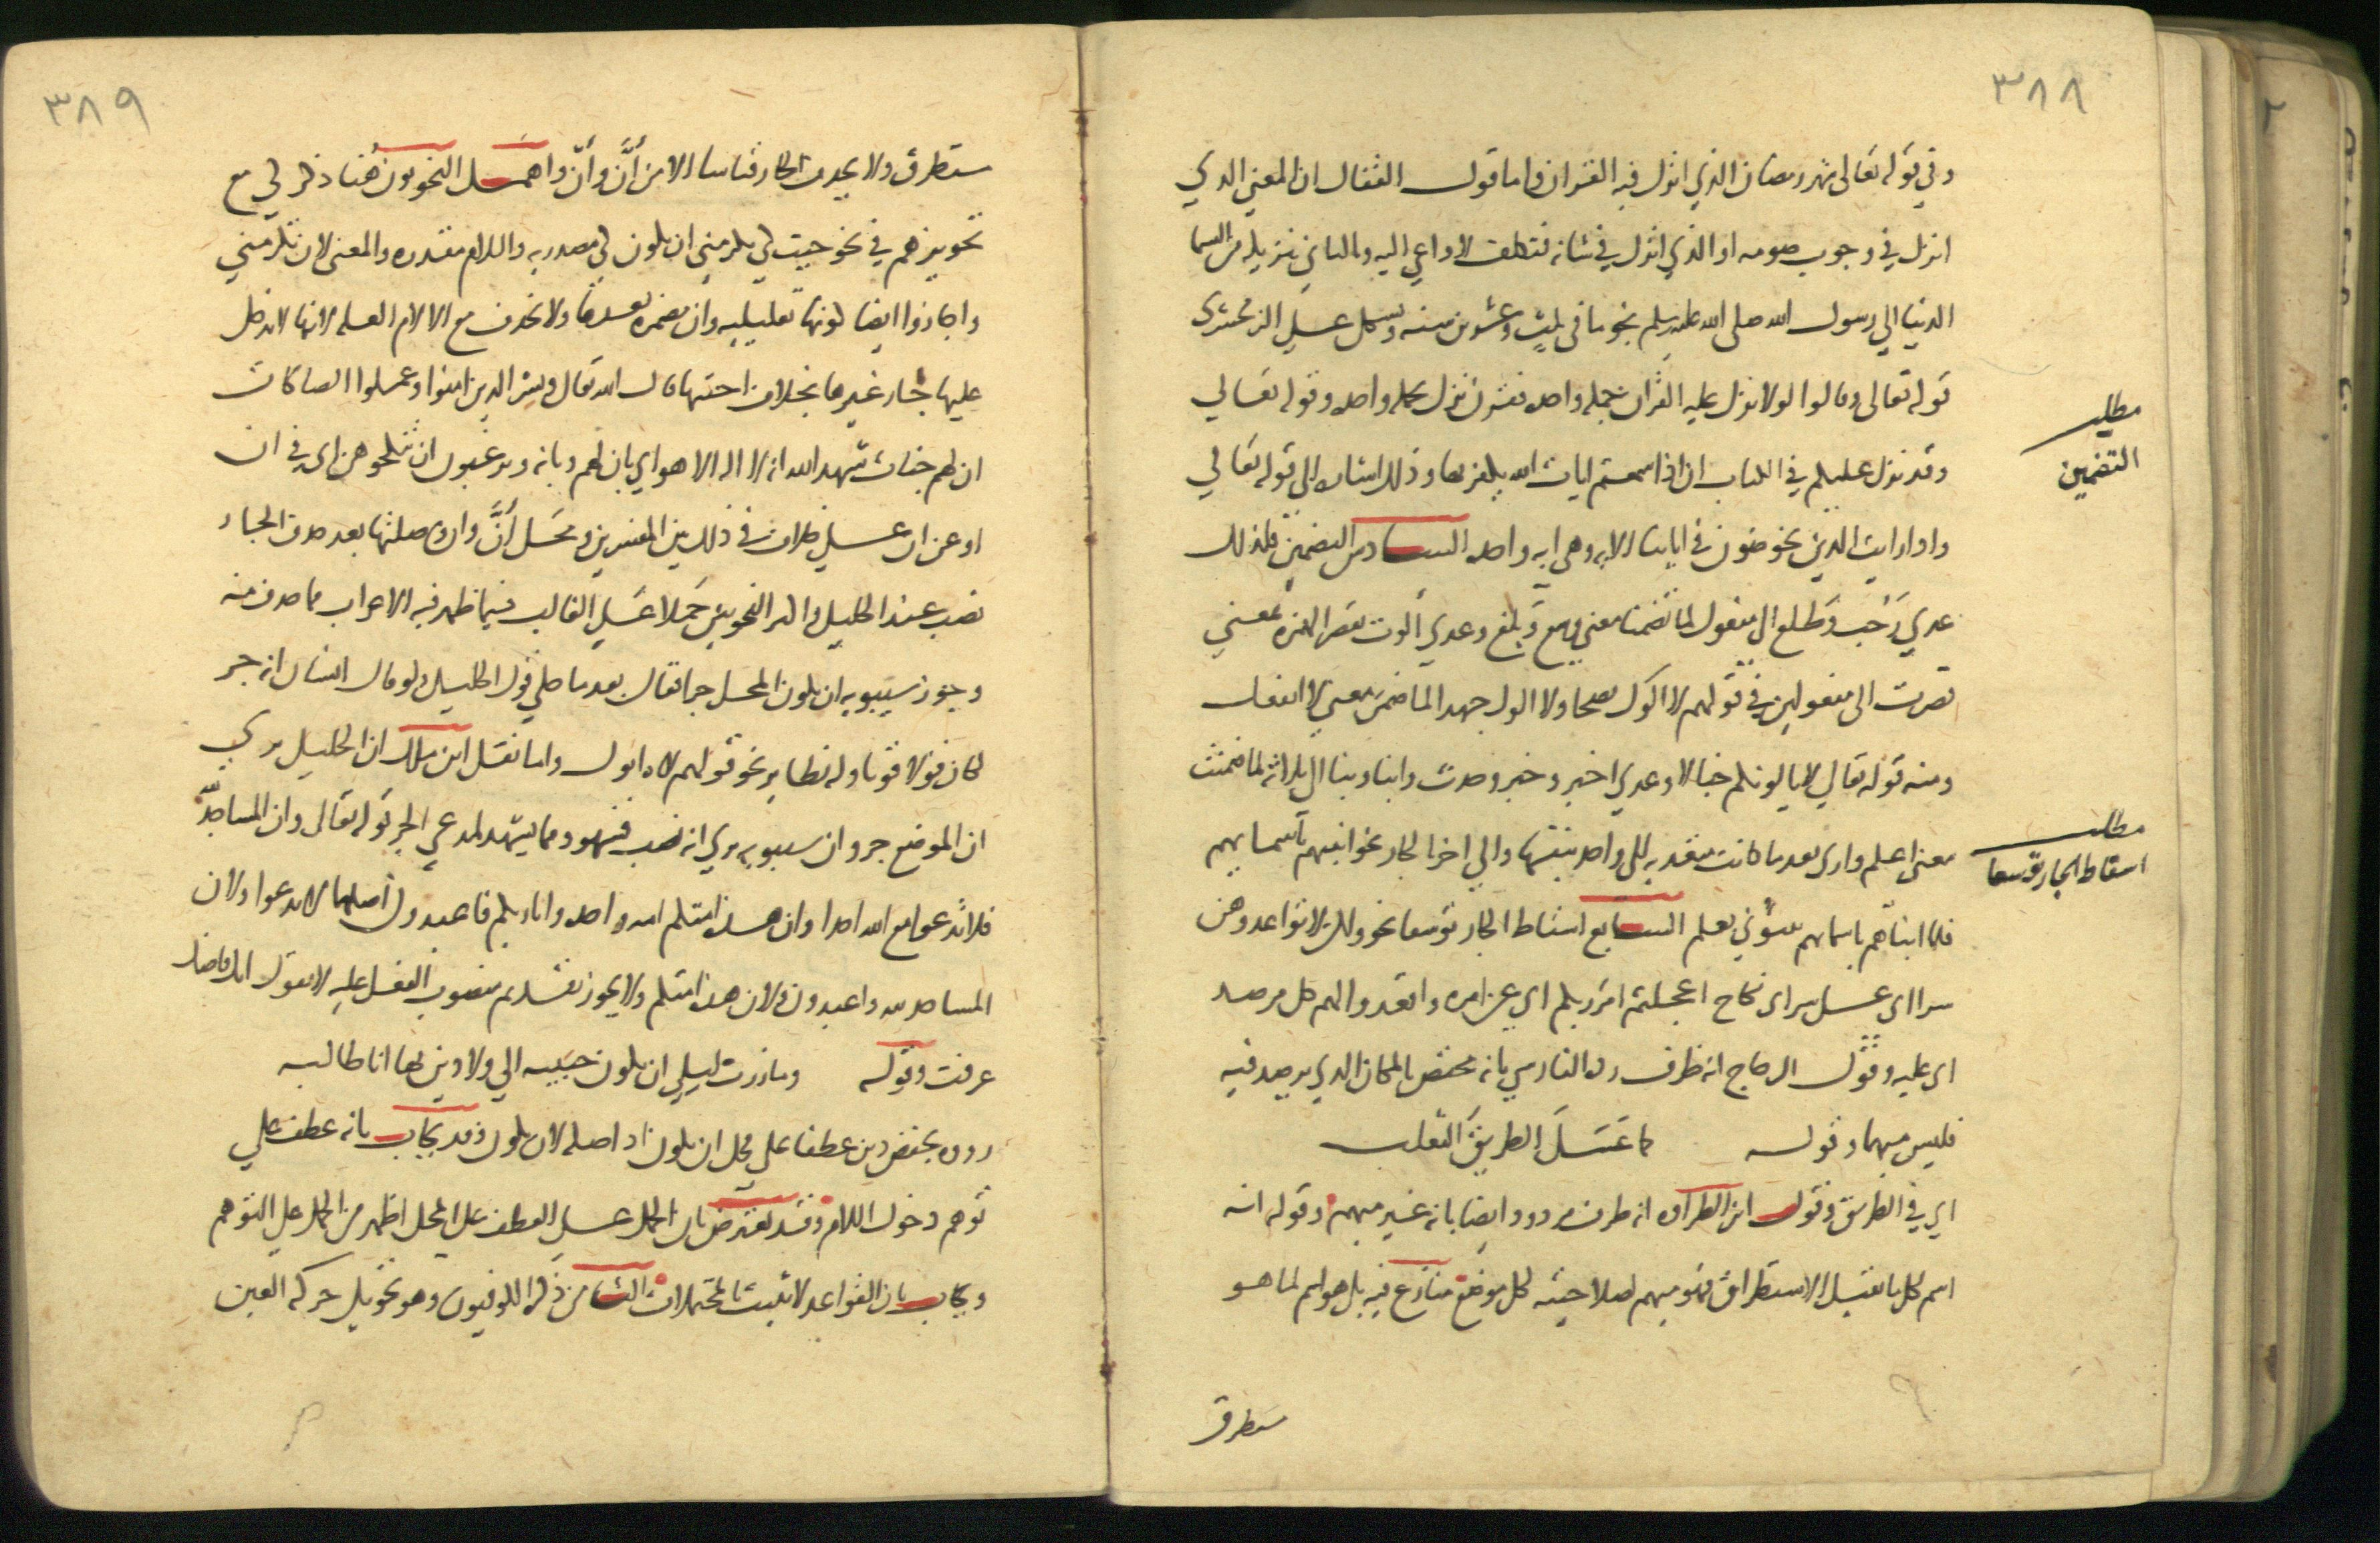 ٣٨٨
وفي قوله تعالى شهر رمضان الذي انزل فيه القران واما قول القفال ان المعنى الذي
انزل في وجوب صومه او الذي انزل في شانه فتكلف لا داعي اليه وبالثاني تنزيله من السما
الدنيا الي رسول الله صلى الله عليه وسلم نجوما في ثلاث وعشرين سنه ويشكل على الزمخشري
قوله تعالى وقالوا لولا نزل عليه القران جمله واحده فقرن نزل بجمله واحده وقوله تعالي
وقد نزل عليكم في الكتاب ان اذا سمعتم ايات الله يكفر بها وذلك اشاره الى قوله تعالي
مطلب
التضمين
واذا رايت الذين يخوضون في اياتنا الايه وهي ايه واحده السادس التضمين فلذلك
عدي رَحُب وطلع الى مفعول لما تضمنا معنى وسع وبلغ وعدي ألوت بقصر الهمزه بمعنى
قصرت الى مفعولين في قولهم لا الوك نصحا ولا الوك جهدا لما ضمن معنى لا امنعك
ومنه قوله تعالي لا يالونكم خبالا وعدي اخبر وخبر وحدث وانبا ونبا الى ثلاثه لما ضمنت
معنى اعلم وارى بعدما كانت متعديه الى واحد بنفسها والي اخر بالجار نحو انبئهم باسمايهم
مطلب
اسقاط الجار توسعا
فلما انباهم باسمايهم نبئوني بعلم السابع اسقاط الجار توسعا نحو ولكن لا تواعدوهن
سرا اى على سر اى نكاح اعجلتم امر ربكم اي عن امره واقعدوا لهم كل مرصد
اى عليه وقول الزجاج انه ظرف رده الفارسي بانه مختص بالمكان الذي يرصد فيه
فليس مبهما وقوله كما عَسَلَ الطريقَ الثعلب
اي في الطريق وقول ابن الطراوه انه ظرف مردود ايضا بانه غير مبهم وقوله انه
اسم لكل ما يقبل الاستطراق فهو مبهم لصلاحيته لكل موضع منازع فيه بل هو اسم لما هو
ستطرق
٣٨٩
ستطرق ولا يحذف الجار قياسا الا من أنَّ وأنْ واهمل النحويون هُنا ذكر كي مع
تجويزهم في نحو جيت كي تكرمني ان تكون كي مصدريه واللام مقدره والمعنى لان تكرمني
واجازوا ايضا كونها تعليليه وان مضمره بعدها ولا تحذف مع الا لام العله لانها لا يدخل
عليها جار غيرها بخلاف اختيها قال الله تعالى وبشر الذين امنوا وعملوا الصالحات
ان لهم جنات شهد الله انه لا اله الا هو اي بان لهم وبانه وترغبون ان تنكحوهن اى في ان
او عن ان على خلاف في ذلك بين المفسرين ومحل أنَّ وان وصلتها بعد حذف الجار
نصب عند الخليل واكثر النحويين حملا على الغالب فيما ظهر فيه الاعراب مما حذف منه
وجوز سيبويه ان يكون المحل جرا فقال بعدما حكي قول الخليل ولو قال انسان انه جر
لكان قولا قويا وله نظاير نحو قولهم لاه ابوك واما نقل ابن مالك ان الخليل يري
ان الموضع جر وان سيبويه يري انه نصب فسهو ومما يشهد لمدعي الجر قوله تعالى وان المساجد
فلا تدعوا مع الله احدا وان هذه امتكم امه واحده وانا ربكم فاعبدون اصلهما لا تدعوا ولان
المساجد لله واعبدون لان هذه امتكم ولا يجوز تقديم منصوب الفعل عليه لا تقول انك فاضل
عرفت وقوله وما زرت ليلى ان تكون حبيبه الي ولا دين بها انا طالبه
رووه بخفض دين عطفا على محل ان تكون اذ اصله لان تكون وقد يجاب بانه عطف على
توهم دخول اللام وقد يعترض بان الحمل على العطف على المحل اظهر من الحمل على التوهم
ويجاب بان القواعد لا تثبت بالمحتملات الثامن ذكره الكوفيون وهو تحويل حركه العين